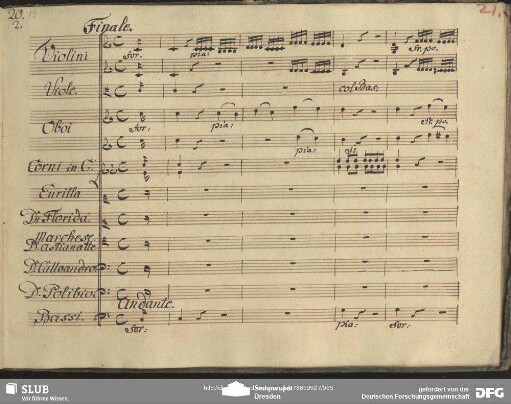 20.
2.
Finale.
21.
Violini
for:
pia:
Viole.
col Bas:
Oboi
for:
pia:
pia:
Corni in C.
Eurilla
Da. Florida.
Marchese
Dn. Calloandro
Dn. Polibio
Andante.
Bassi.
for:
pia:
for:
SLUB
Wir führen Wissen.
Dresden
gefördert von der
Deutschen Forschungsgemeinschaft
DFG